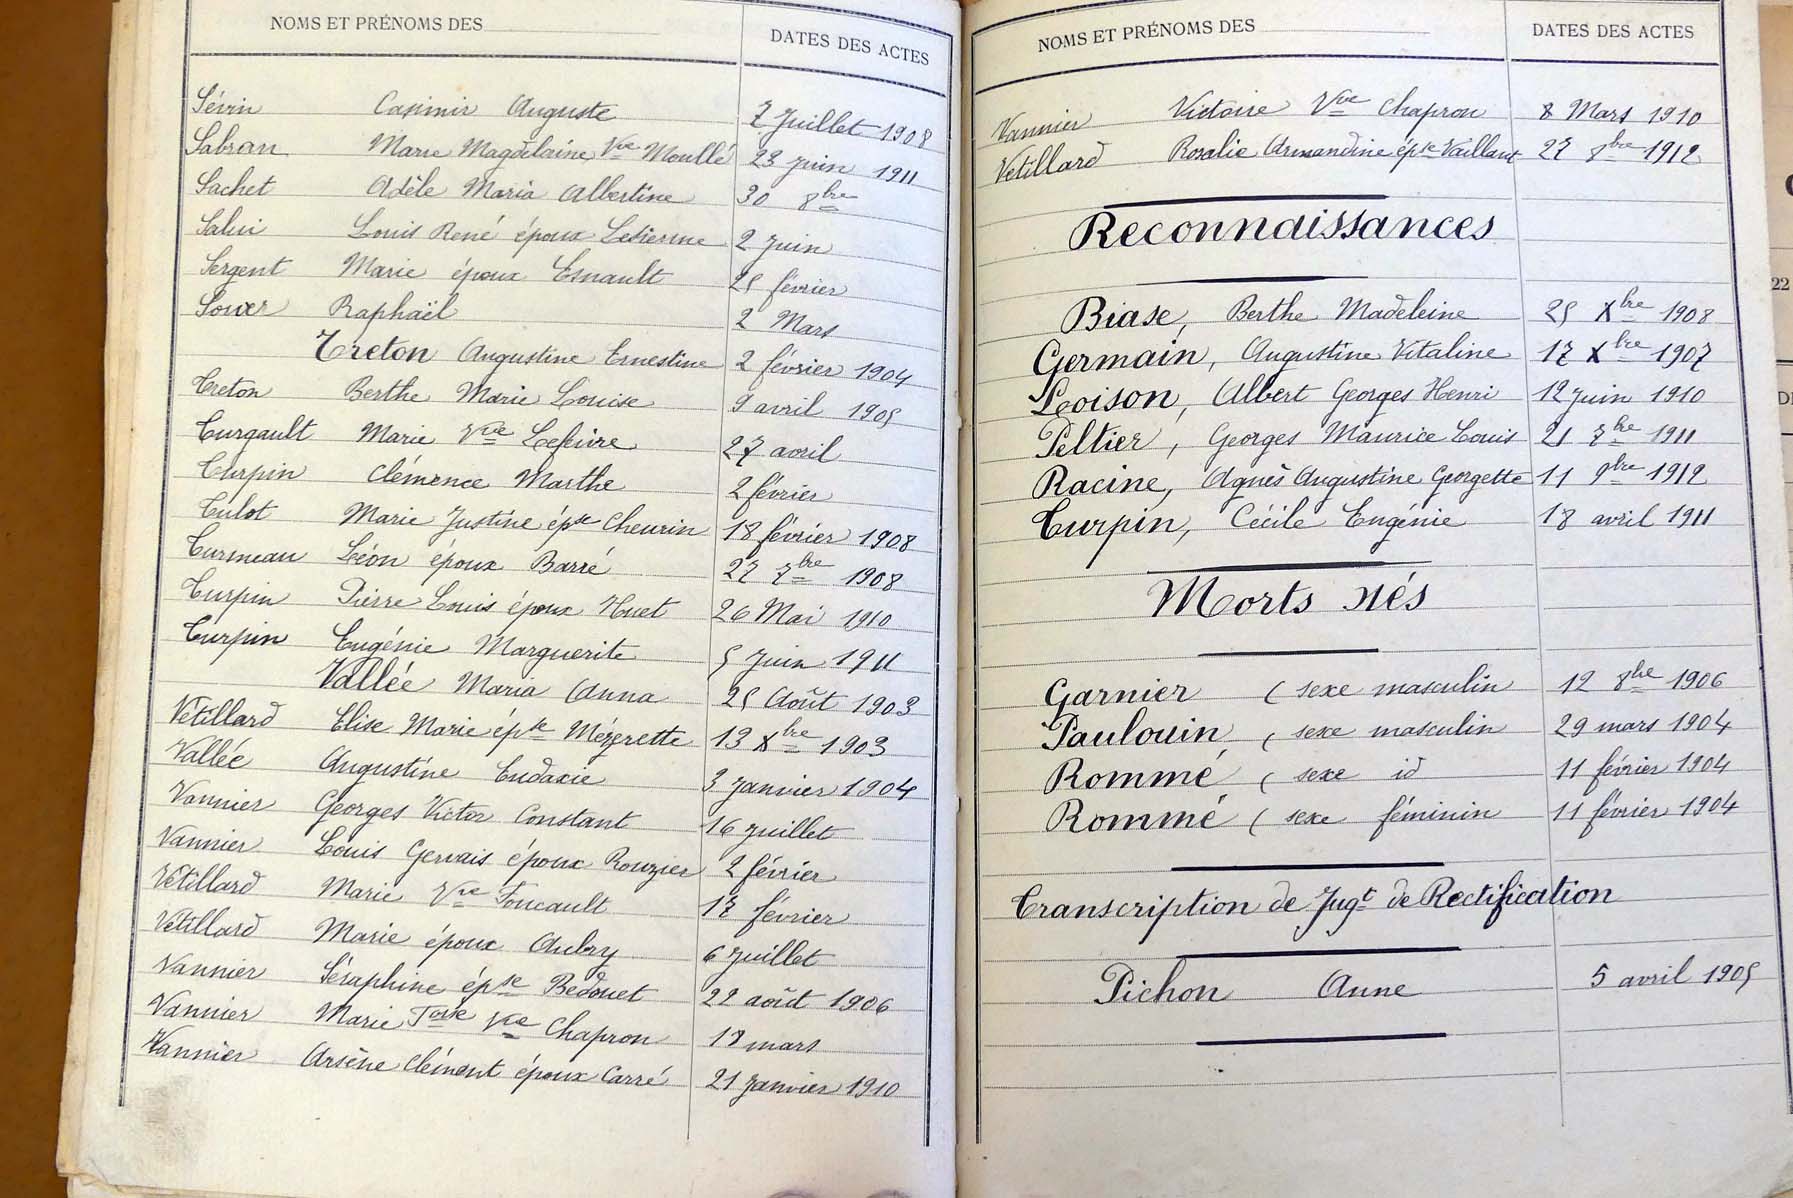 NOMS ET PRÉNOMS DES
DATES DES ACTES
Sévin Casimir Auguste 7 Juillet 1908
Sabran Marie Magdelaine Vve Moullé 23 juin 1911
Sachet Adèle Maria Albertine 30 8bre
Salui Louis René époux Letierme 2 juin
Sergent Marie époux Esnault 25 février
Sower Raphaël 2 Mars
Treton Augustine Ernestine 2 février 1904
Treton Berthe Marie Louise 9 avril 1905
Turgault Marie Vve Lefeivre 27 avril
Turpin Clémence Marthe 2 février
Tulot Marie Justine épse Cheurin 18 février 1908
Turmeau Léon époux Barré 27 7bre 1908
Turpin Pierre Louis époux Huet 26 Mai 1910
Turpin Eugénie Marguerite 5 Juin 1911
Vallée Maria Anna 25 Août 1903
Vétillard Elise Marie épse Mézerette 13 Xbre 1903
Vallée Augustine Eudoxie 3 janvier 1904
Vannier Georges Victor Constant 16 juillet
Vannier Louis Gervais époux Rouzier 2 février
Vétillard Marie Vve Foucault 17 février
Vétillard Marie époux Aubry 6 juillet
Vannier Séraphine épse Bedouet 22 août 1906
Vannier Marie Vve Chapron 18 mars
Vannier Arsène Clément époux Carré 21 janvier 1910
NOMS ET PRÉNOMS DES
DATES DES ACTES
Vannier Victoire Vve Chapron 8 Mars 1910
Vétillard Rosalie Armandine épse Vaillant 27 8bre 1912
Reconnaissances
Biase, Berthe Madeleine 25 Xbre 1908
Germain, Augustine Vitaline 17 Xbre 1907
Loison, Albert Georges Henri 12 juin 1910
Peltier, Georges Maurice Louis 21 7bre 1911
Racine, Agnès Augustine Georgette 11 9bre 1912
Turpin, Cécile Eugénie 18 avril 1911
Morts nés
Garnier ( sexe masculin 12 8bre 1906
Paulouin ( sexe masculin 29 mars 1904
Rommé ( sexe id 11 février 1904
Rommé ( sexe féminin 11 février 1904
Transcription de Jugt de Rectification
Pichon Anne 5 avril 1905
22